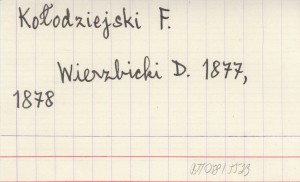 Kołodziejski F.
Wierzbicki D. 1877,
1878